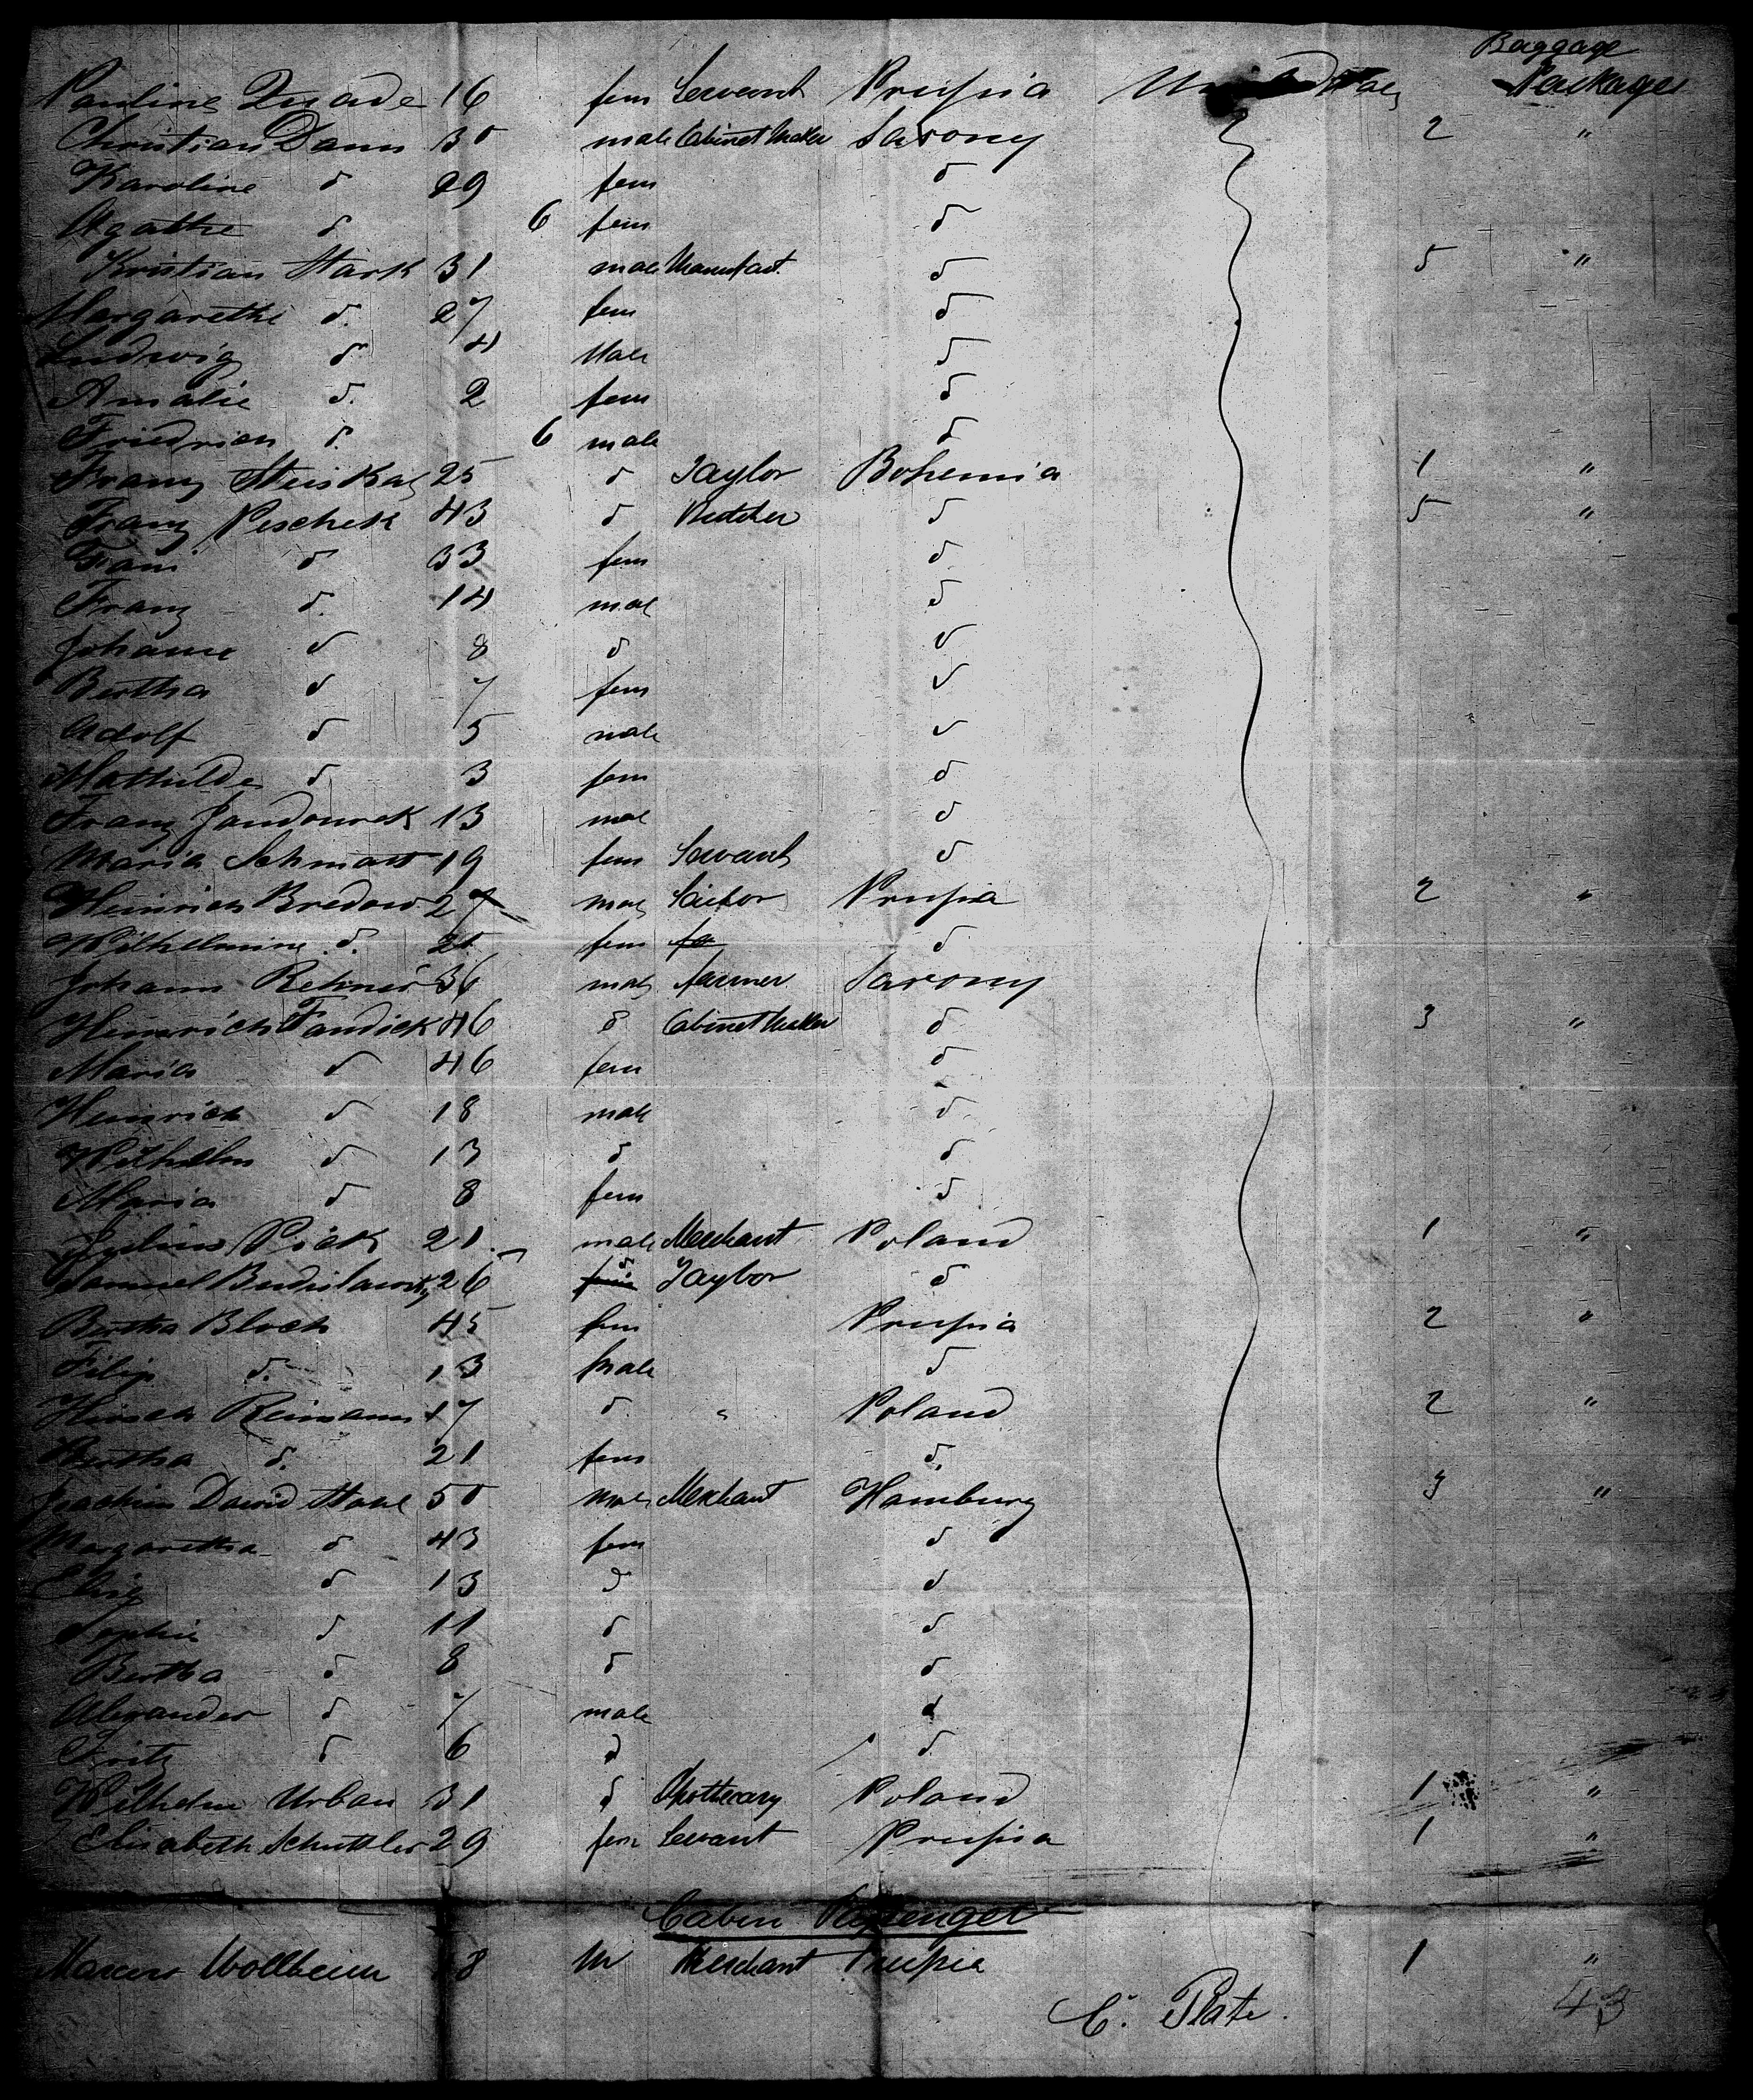 Baggage
Pauline Quade 16 fem Servant Prussia Packages
Christian Damm 30 male Cabinet Maker Saxony 2 "
Karoline d 29 fem d
Agathe d 6 fem d
Kristian Stark 31 male Manufact. d 5 "
Margarethe d. 27 fem d
Ludwig d 4 Male d
Amalie d. 2 fem d
Friedrich d. 6 male d
Franz 25 d Taylor Bohemia 1 "
Franz Peschek 43 d Butcher d 5 "
d 33 fem d
Franz d. 14 mal d
Johann d 8 d d
Bertha d 7 fem d
Adolf d 5 male d
Mathilde d 3 fem d
Franz Jandourek 13 mal d
Maria 19 fem Servant d
Heinrich Bredow 27 mal Prussia 2 "
Wilhelmine d. fem d
Johann 36 male farmer Saxony
Heinrich Fandick 46 d Cabinet Maker d 3 "
Maria d 46 fem d
Heinrich d 18 male d
Wilhelm d 13 d d
Maria d 8 fem d
Julius Pick 21 male Merchant Poland 1 "
Samuel 26 d Taylor d
Bertha Bloch 45 fem Prussia 2 "
Filip d. 13 Male d
Hirsch Reimann 17 d. " Poland 2 "
Bertha d. 21 fem d.
Joachim David 50 male Merchant Hamburg 3 "
Margaretha d 43 fem d
d 13 d d
Sophie d 11 d d
Bertha d 8 d d
Alexander d 7 male d
Fritz d 6 d d.
Wilhelm Urban 31 d Apothecary Poland 1 "
Elisabeth Schuttler 29 fem Servant Prussia 1 "
Cabin Passenger
Wollheim M Merchant Prussia 1 "
C. Plate. 43